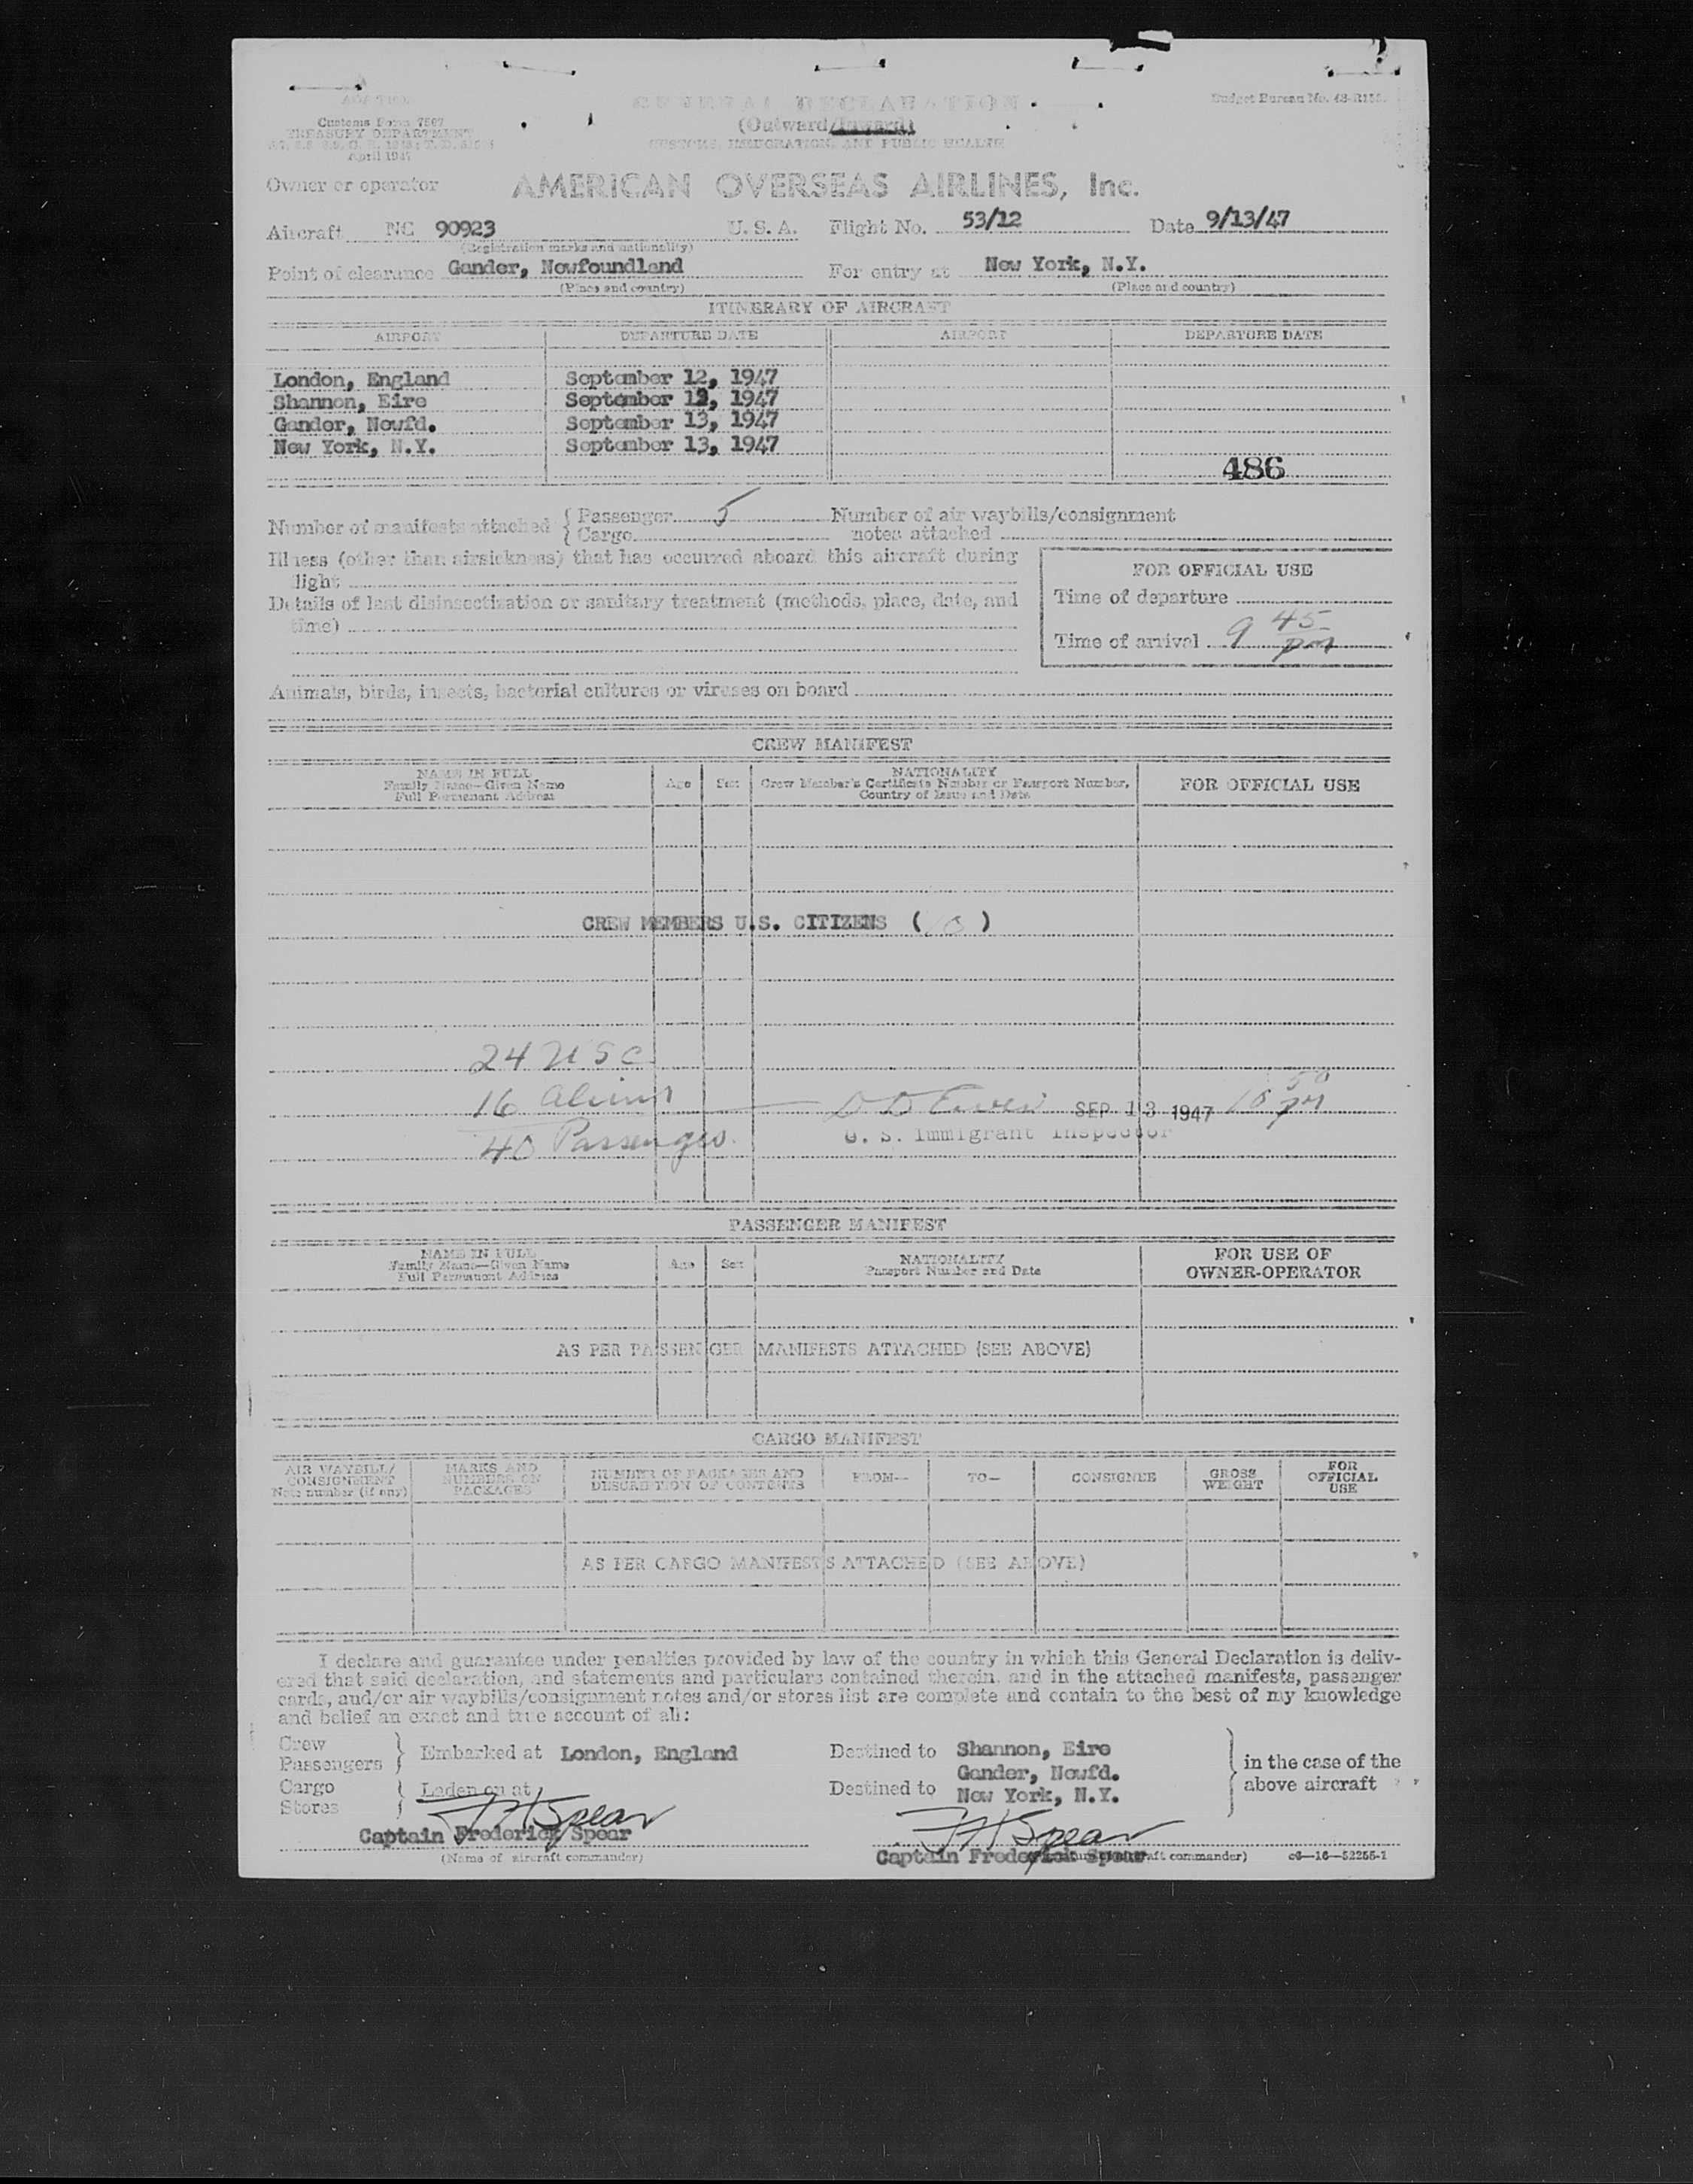 GENERAL DECLARATION
(Outward/Inward)
CUSTOMS, IMMIGRATION, AND PUBLIC HEALTH
Budget Bureau No.
Customs Form 7507
TREASURY DEPARTMENT
April 1947
Owner or operator AMERICAN OVERSEAS AIRLINES, Inc.
Aircraft NC 90923 U. S. A. Flight No. 53/12 Date 9/13/47
(Registration marks and nationality)
Point of clearance Gander, Newfoundland For entry at New York, N.Y.
(Place and country) (Place and country)
ITINERARY OF AIRCRAFT
AIRPORT DEPARTURE DATE AIRPORT DEPARTURE DATE
London, England September 12, 1947
Shannon, Eire September 1, 1947
Gander, Newfd. September 13, 1947
New York, N.Y. September 13, 1947
486
Number of manifests attached { Passenger 5 Number of air waybills/consignment
Cargo notes attached
Illness (other than airsickness) that has occurred aboard this aircraft during
flight
FOR OFFICIAL USE
Details of last disinsectization or sanitary treatment (methods, place, date, and
time)
Time of departure
Time of arrival 9 45 pm
Animals, birds, insects, bacterial cultures or viruses on board
CREW MANIFEST
NAME IN FULL
Family Name—Given Name
Full Permanent Address
Age Sex
NATIONALITY
Crew Member's Certificate Number or Passport Number,
Country of Issue and Date
FOR OFFICIAL USE
CREW MEMBERS U.S. CITIZENS ( )
24 USC
16 Aliens
SEP 13 1947 10 50 pm
40 Passengers.
U. S. Immigrant Inspector
PASSENGER MANIFEST
NAME IN FULL
Family Name—Given Name
Full Permanent Address
Age Sex
NATIONALITY
Passport Number and Date
FOR USE OF
OWNER-OPERATOR
AS PER PASSENGER MANIFESTS ATTACHED (SEE ABOVE)
CARGO MANIFEST
AIR WAYBILL/
CONSIGNMENT
Note number (if any)
MARKS AND
NUMBERS ON
PACKAGES
NUMBER OF PACKAGES AND
DESCRIPTION OF CONTENTS
FROM— TO— CONSIGNEE
GROSS
WEIGHT
FOR
OFFICIAL
USE
AS PER CARGO MANIFESTS ATTACHED (SEE ABOVE)
I declare and guarantee under penalties provided by law of the country in which this General Declaration is deliv-
ered that said declaration, and statements and particulars contained therein, and in the attached manifests, passenger
cards, and/or air waybills/consignment notes and/or stores list are complete and contain to the best of my knowledge
and belief an exact and true account of all:
Crew
Passengers } Embarked at London, England Destined to Shannon, Eire
Gander, Newfd.
Cargo
Stores Laden on at Destined to New York, N.Y.
in the case of the
above aircraft
F H Spear F H Spear
Captain Frederick Spear
(Name of aircraft commander)
Captain Frederick Spear
aircraft commander) c6—16—52255-1